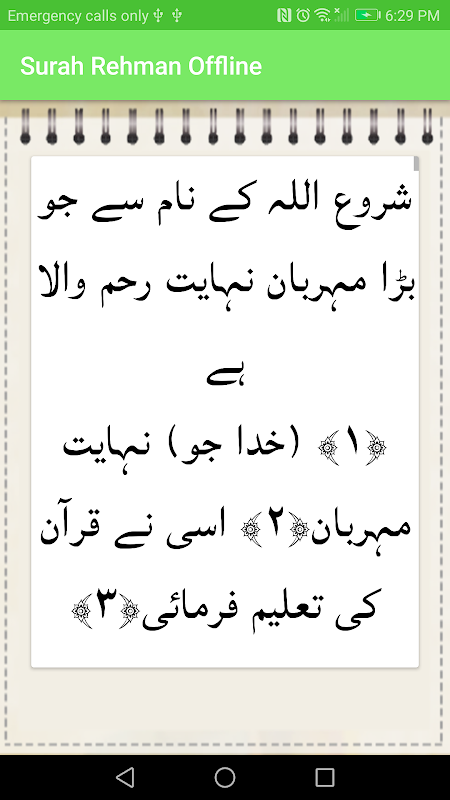 Emergency calls only 6:29 PM
Surah Rehman Offline
شروع اللہ کے نام سے جو
بڑا مہربان نہایت رحم والا
ہے
﴿۱﴾ (خدا جو) نہایت
مہربان﴿۲﴾ اسی نے قرآن
کی تعلیم فرمائی﴿۳﴾